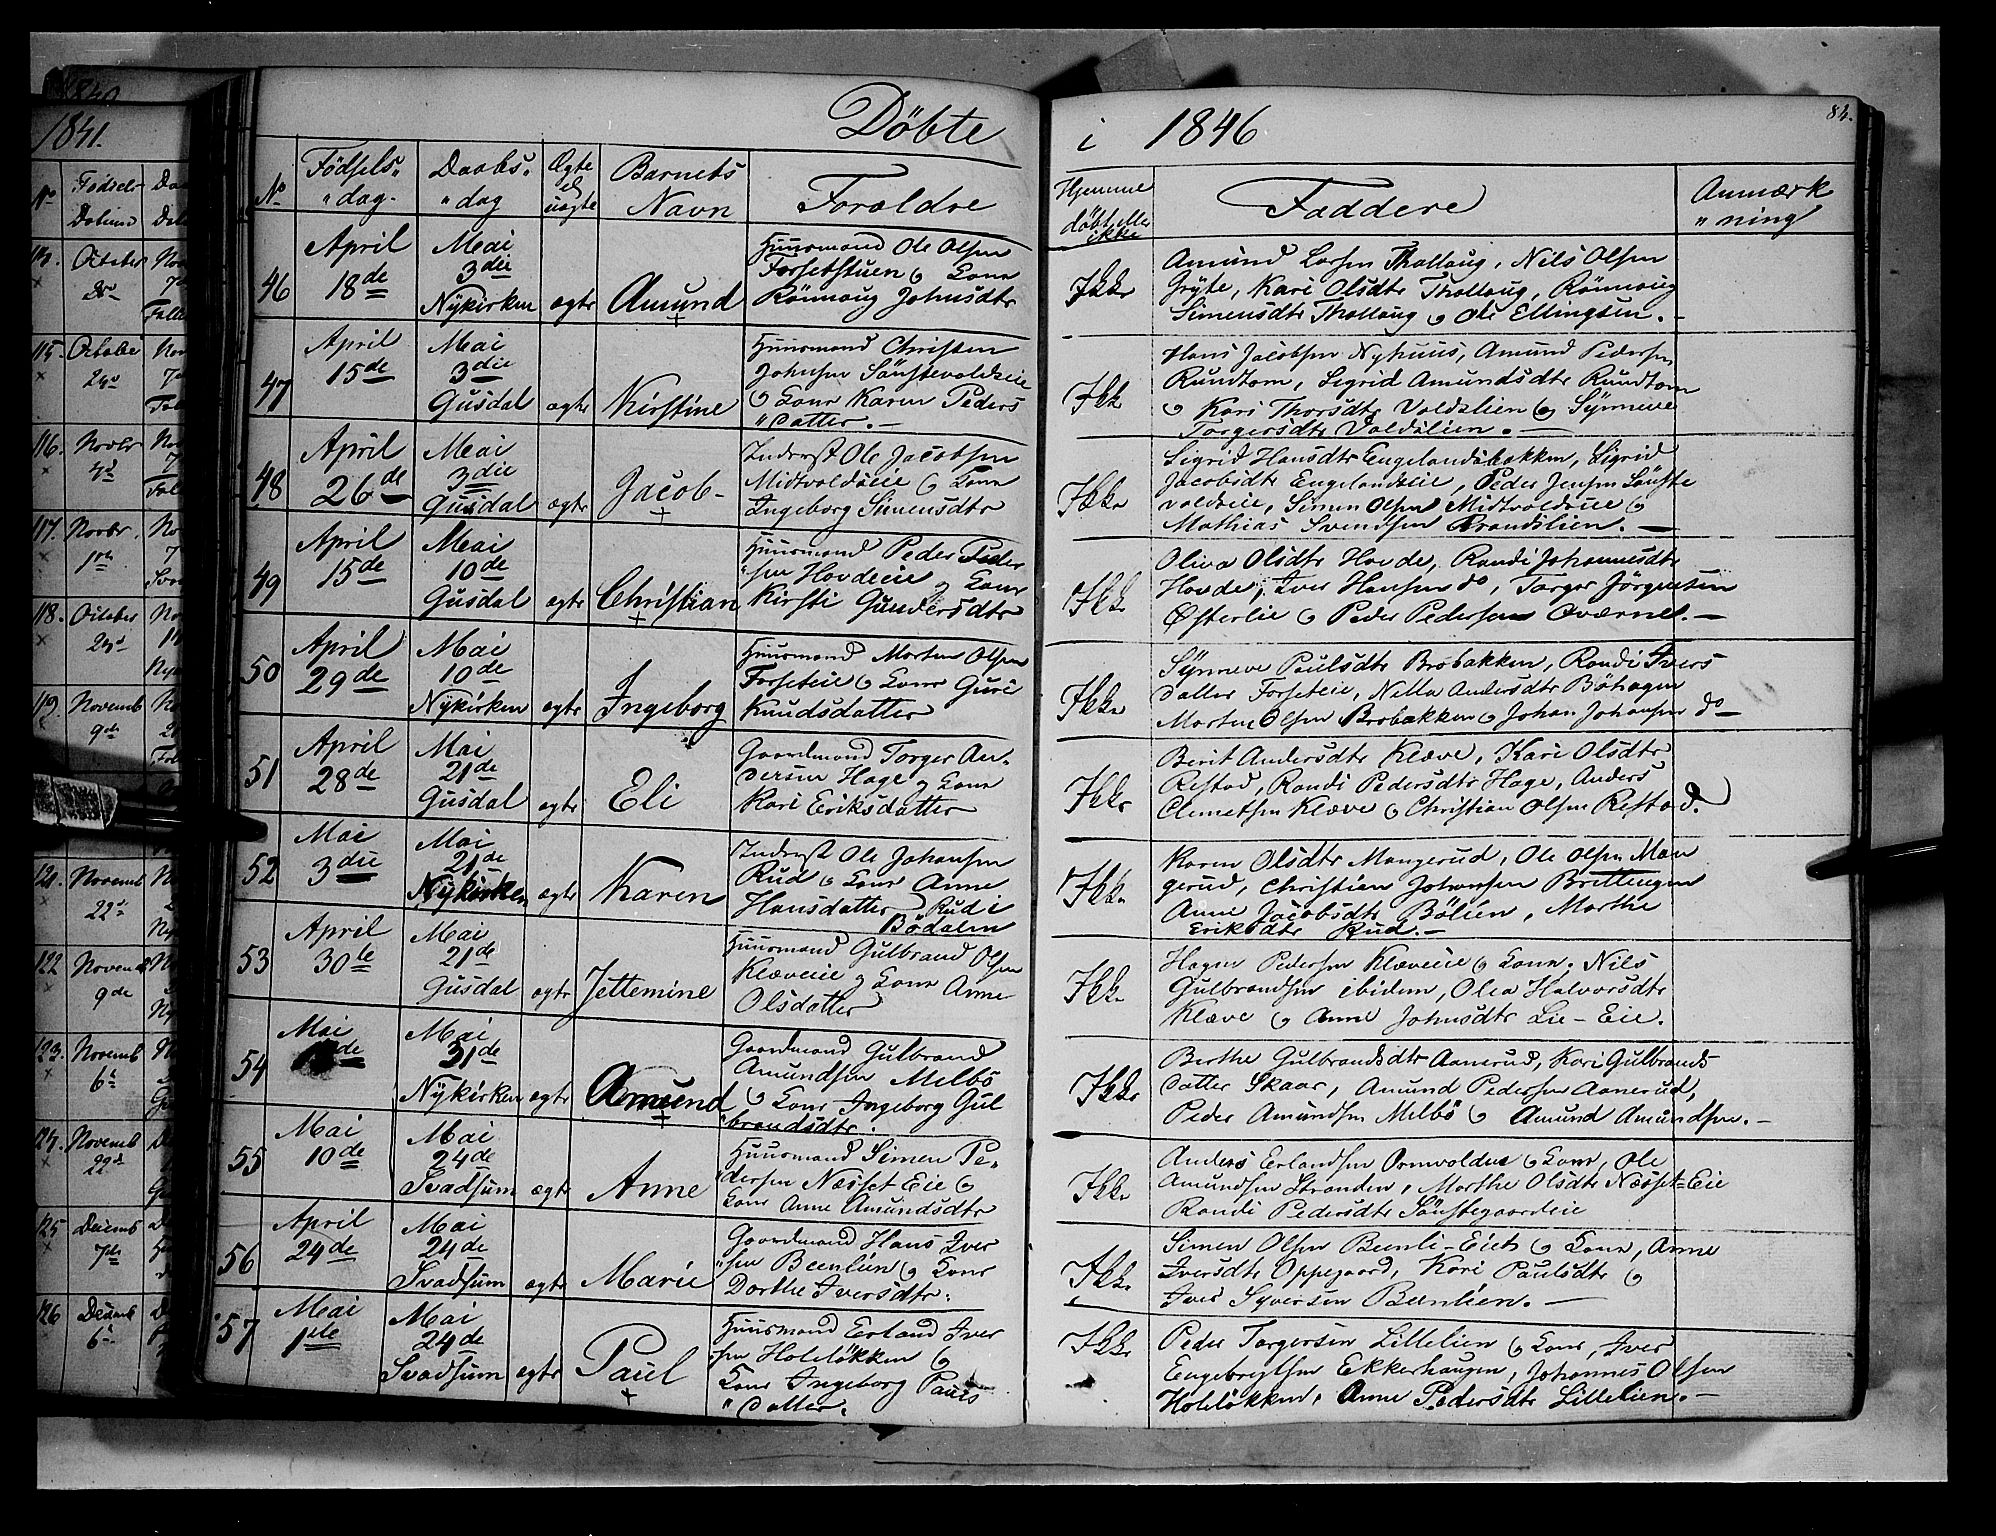 1840
1841.
Döbte i 1846
84.
No
Födsels-
Datum
No
Födsels„
„dag.
Daabs„
„dag
Ægte
el
uægte
Barnets
Navn
Forældre
Hjemme
döbt eller
ikke
Faddere
Anmærk
„ning
114. October
115. October
116. Novbr
117. Novbr.
118. October
119. Novemb
9de
121. Novemb
22
122 Novemb
9de
123. Novemb
6
124. Novemb
22
125 Decemb
7de
126 Decemb
6
46
April
18de
Mai
3die
Nykirken
ægte
Amund
Huusmand Ole Olsen
Forsetstuen og Kone
Rönnoug Johnsdtr
Ikke
Amund Larsen Thollaug, Nils Olsen
Gryte, Kari Olsdtr Thollaug, Rönnoug
Simensdtr Thollaug og Ole Ellingsen.
47
April
15de
Mai
3die
Gusdal
ægte
Kirstine
Huusmand Christen
Johnsen Sönstevoldseie
og Kone Karen Peders
„datter.-
Ikke
Hans Jacobsen Nyhuus, Amund Pedersen
Rundtom, Sigrid Amundsdtr Rundtom
og Kari Thorsdtr Voldslien og Synneve
Torgersdtr Voldslien.-
48
April
26de
Mai
3die
Gusdal
ægte
Jacob-
Inderst Ole Jacobsen
Midtvoldseie og Kone
Ingeborg Simensdtr
Ikke
Sigrid Hansdtr Engelandsbakken, Sigrid
Jacobsdtr Engelandseie, Peder Jensen Sönste
voldseie, Simen Olsen Midtvoldseie og
Mathias Svendsen Brandslien.-
49
April
15de
Mai
10de
Gusdal
ægte
Christian
Huusmand Peder Peder
„sen Hovdeeie og Kone
Kirsti Gundersdtr
Ikke
Oliva Olsdtr Hovde, Randi Johannesdtr
Hovde, Iver Hansen do, Torger Jörgensen
Østerlie og Peder Pedersen Qværnel.-
50
April
29de
Mai
10de
Nykirken
ægte
Ingeborg
Huusmand Morten Olsen
Forseteie og Kone Guri
Knudsdatter
Ikke
Synneve Paulsdtr Brobakken, Randi Ivers
datter Forseteie, Nella Andersdtr Böhagen
Morten Olsen Brobakken og Johan Johansen do-
51
April
28de
Mai
21de
Gusdal
ægte
Eli
Gaardmand Torger An-
dersen Hage og Kone
Kari Eriksdatter
Ikke
Berit Andersdtr Klæve, Kari Olsdtr
Refstad, Randi Pedersdtr Hage, Anders
Clemetsen Klæve og Christian Olsen Refstad.
52
Mai
3die
Mai
21de
Nykirken
ægte
Karen
Inderst Ole Johansen
Rud og Kone Anne
Hansdatter Rud i
Bödalen
Ikke
Karen Olsdtr Mangerud, Ole Olsen Man
gerud, Christian Johansen Brettingen
Anne Jacobsdtr Bölien, Marthe
Eriksdtr Rud.-
53
April
30te
Mai
21de
Gusdal
ægte
Jettemine
Huusmand Gulbrand Olsen
Klæveeie og Kone Anne
Olsdatter
Ikke
Hagen Pedersen Klæveeie og Kone, Nils
Gulbrandsen ibidem, Olea Halvorsdtr
Klæve og Anne Johnsdtr Lie-Eie.
54
Mai
de
Mai
31de
Nykirken
ægte
Amund
Gaardmand Gulbrand
Amundsen Melbö
og Kone Ingeborg Gul
brandsdtr.
Ikke
Berthe Gulbrandsdtr Aanerud, Kari Gulbrands
datter Skaar, Amund Pedersen Aanerud,
Peder Amundsen Melbö og Amund Amundsen.-
55
Mai
10de
Mai
24de
Svadsum
ægte
Anne
Huusmand Simen Pe-
dersen Næsset Eie og
Kone Anne Amundsdtr
Ikke
Anders Erlandsen Ormvoldeie og Kone, Ole
Amundsen Stranden, Marthe Olsdtr Næsset-Eie
Randi Pedersdtr Sönstegaardeie
56
April
24de
Mai
24de
Svadsum
ægte
Marie
Gaardmand Hans Iver
„sen Beenlien og Kone
Dorthe Iversdtr.
Ikke
Simen Olsen Beenli-Eiet og Kone, Anne
Iversdtr Oppegaard, Kari Paulsdtr og
Iver Syversen Beenlien.-
57
Mai
1ste
Mai
24de
Svadsum
ægte
Paul
Huusmand Erland Iver
„sen Holelökken og
Kone Ingeborg Pauls
„datter.
Ikke
Peder Torgersen Lillelien og Kone, Iver
Engebregtsen Ekkerhaugen, Johannes Olsen
Holelökken, Anne Pedersdtr Lillelien.-